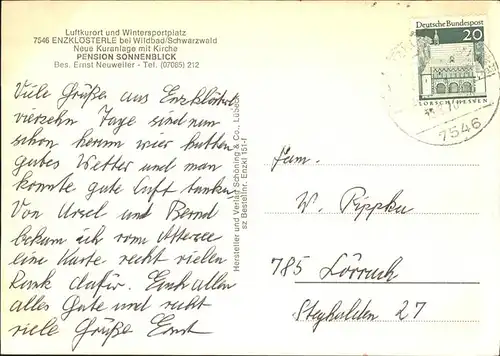 Luftkurort und Wintersportplatz
7546 ENZKLÖSTERLE bei Wildbad/Schwarzwald
Neue Kuranlage mit Kirche
PENSION SONNENBLICK
Bes. Ernst Neuweiler - Tel. (07085) 212
Viele Grüße aus Enzklösterle
vierzehn Tage sind nun
schon herum wir hatten
gutes Wetter und man
konnte gute Luft tanken
Von Ursel und Bernd
bekam ich vom Attersee
eine Karte recht vielen
Dank dafür. Euch allen
alles Gute und recht
viele Grüße Ernst
Hersteller und Verlag Schöning & Co., Lübeck
sz Bestellnr. Enzkl 151-f
Deutsche Bundespost
20
LORSCH/HESSEN
7546
Fam.
W. Pippku
785 Lörrach
27